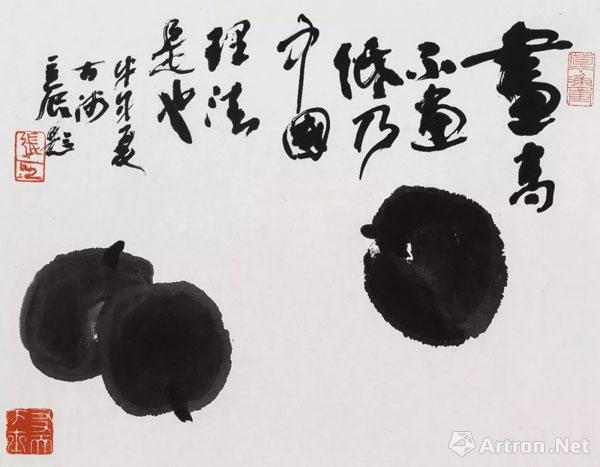 畫高
不画
低乃
中國
理法
是也
年夏
古沛
立辰題
Artron.Net